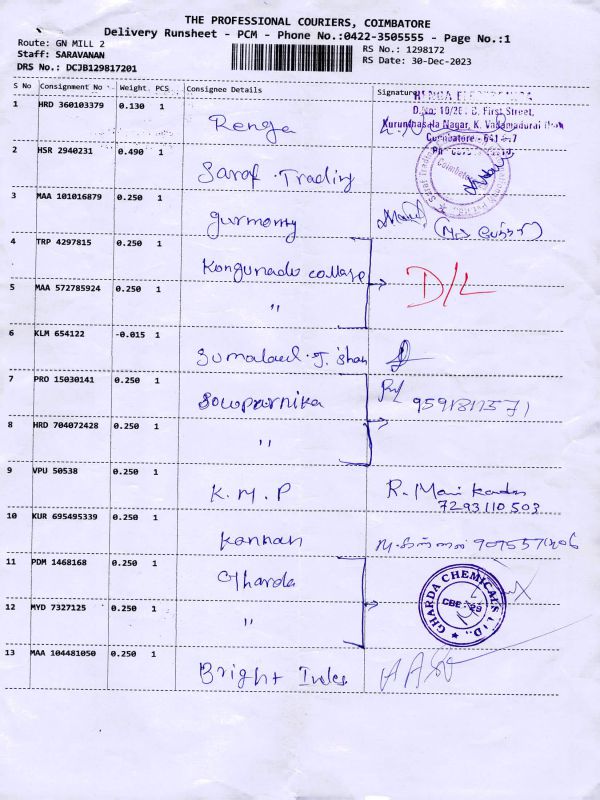 THE PROFESSIONAL COURIERS, COIMBATORE
Delivery Runsheet - PCM - Phone No.:0422-3505555 - Page No.:1
Route: GN MILL 2
RS No.: 1298172
Staff: SARAVANAN
RS Date: 30-Dec-2023
DRS No.: DCJB129817201
S No Consignment No Weight PCS Consignee Details Signature
1 HRD 360103379 0.130 1 Renga
D.No: 10/2
First Street,
Coimbatore
2 HSR 2940231 0.490 1 Saraf Trading
Coimbatore
3 MAA 101016879 0.250 1 gurmony
4 TRP 4297815 0.250 1 Kongunadu college
D/L
5 MAA 572785924 0.250 1 "
6 KLM 654122 -0.015 1
7 PRO 15030141 0.250 1 Sowparnika
8 HRD 704072428 0.250 1 "
9 VPU 50538 0.250 1 K.M.P R. Mani
7293110503
10 KUR 695495339 0.250 1 Kannan
11 PDM 1468168 0.250 1 Gharda
GHARDA CHEMICALS LTD.,
CBE - 29
12 MYD 7327125 0.250 1 "
13 MAA 104481050 0.250 1 Bright